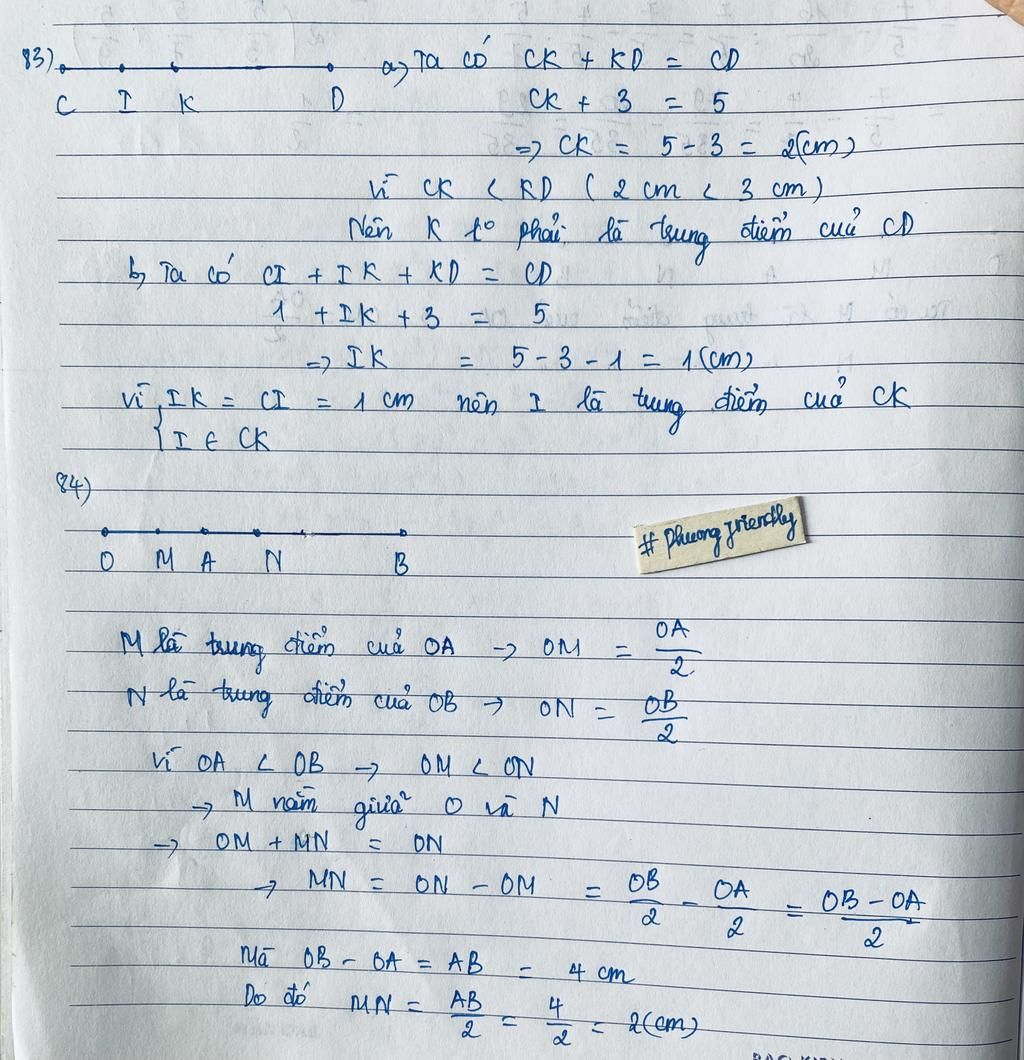 83)
C I K D
a, Ta có CK + KD = CD
CK + 3 = 5
=> CK = 5 - 3 = 2(cm)
Vì CK < KD ( 2 cm < 3 cm )
Nên K ko phải là trung điểm của CD
b, Ta có CI + IK + KD = CD
1 + IK + 3 = 5
=> IK = 5 - 3 - 1 = 1(cm)
Vì { IK = CI = 1 cm nên I là trung điểm của CK
I ∈ CK
84)
O M A N B
# Phuong friendly
M là trung điểm của OA -> OM = OA/2
N là trung điểm của OB -> ON = OB/2
Vì OA < OB -> OM < ON
-> M nằm giữa O và N
-> OM + MN = ON
-> MN = ON - OM = OB/2 - OA/2 = (OB - OA)/2
Mà OB - OA = AB = 4 cm
Do đó MN = AB/2 = 4/2 = 2(cm)